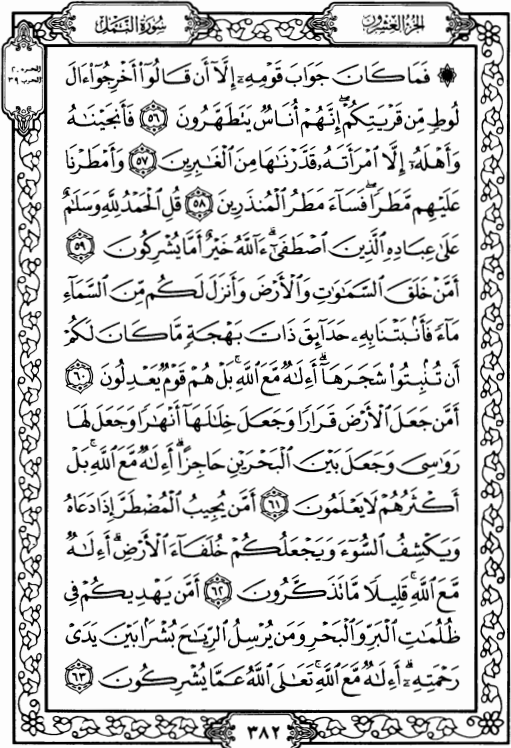 الجزء العشرون
سورة النمل
الحزب ٣٩
۞ فَمَا كَانَ جَوَابَ قَوْمِهِۦٓ إِلَّآ أَن قَالُوٓا۟ أَخْرِجُوٓا۟ ءَالَ
لُوطٍ مِّن قَرْيَتِكُمْ ۖ إِنَّهُمْ أُنَاسٌ يَتَطَهَّرُونَ ٥٦ فَأَنجَيْنَٰهُ
وَأَهْلَهُۥٓ إِلَّا ٱمْرَأَتَهُۥ قَدَّرْنَٰهَا مِنَ ٱلْغَٰبِرِينَ ٥٧ وَأَمْطَرْنَا
عَلَيْهِم مَّطَرًا ۖ فَسَآءَ مَطَرُ ٱلْمُنذَرِينَ ٥٨ قُلِ ٱلْحَمْدُ لِلَّهِ وَسَلَٰمٌ
عَلَىٰ عِبَادِهِ ٱلَّذِينَ ٱصْطَفَىٰٓ ۗ ءَآللَّهُ خَيْرٌ أَمَّا يُشْرِكُونَ ٥٩
أَمَّنْ خَلَقَ ٱلسَّمَٰوَٰتِ وَٱلْأَرْضَ وَأَنزَلَ لَكُم مِّنَ ٱلسَّمَآءِ
مَآءً فَأَنۢبَتْنَا بِهِۦ حَدَآئِقَ ذَاتَ بَهْجَةٍ مَّا كَانَ لَكُمْ
أَن تُنۢبِتُوا۟ شَجَرَهَآ ۗ أَءِلَٰهٌ مَّعَ ٱللَّهِ ۚ بَلْ هُمْ قَوْمٌ يَعْدِلُونَ ٦٠
أَمَّن جَعَلَ ٱلْأَرْضَ قَرَارًا وَجَعَلَ خِلَٰلَهَآ أَنْهَٰرًا وَجَعَلَ لَهَا
رَوَٰسِىَ وَجَعَلَ بَيْنَ ٱلْبَحْرَيْنِ حَاجِزًا ۗ أَءِلَٰهٌ مَّعَ ٱللَّهِ ۚ بَلْ
أَكْثَرُهُمْ لَا يَعْلَمُونَ ٦١ أَمَّن يُجِيبُ ٱلْمُضْطَرَّ إِذَا دَعَاهُ
وَيَكْشِفُ ٱلسُّوٓءَ وَيَجْعَلُكُمْ خُلَفَآءَ ٱلْأَرْضِ ۗ أَءِلَٰهٌ
مَّعَ ٱللَّهِ ۚ قَلِيلًا مَّا تَذَكَّرُونَ ٦٢ أَمَّن يَهْدِيكُمْ فِى
ظُلُمَٰتِ ٱلْبَرِّ وَٱلْبَحْرِ وَمَن يُرْسِلُ ٱلرِّيَٰحَ بُشْرًۢا بَيْنَ يَدَىْ
رَحْمَتِهِۦٓ ۗ أَءِلَٰهٌ مَّعَ ٱللَّهِ ۚ تَعَٰلَى ٱللَّهُ عَمَّا يُشْرِكُونَ ٦٣
٣٨٢